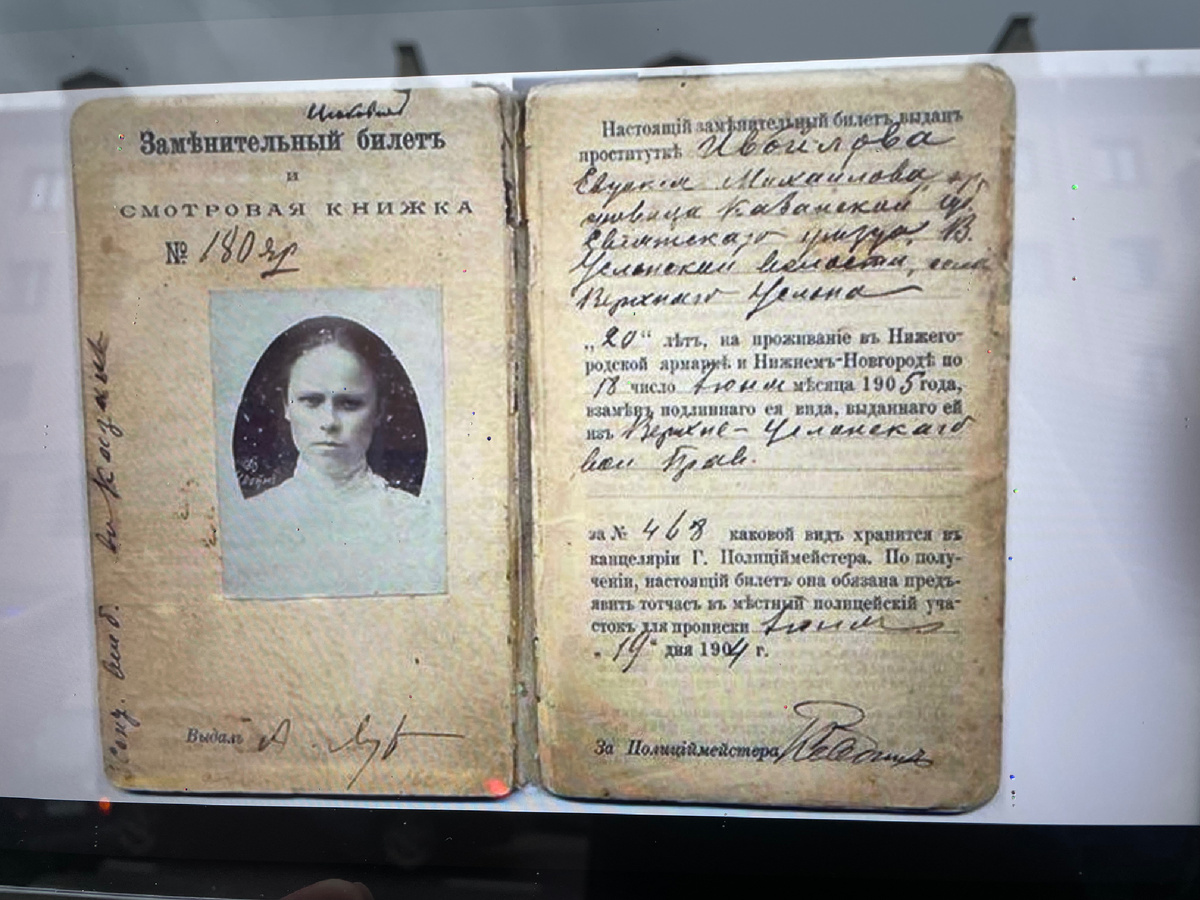 Замѣнительный билетъ
и
СМОТРОВАЯ КНИЖКА
№ 180 яр
Выдалъ А.
Настоящій замѣнительный билетъ выданъ
проституткѣ Ивойлова
Евдокія Михайлова, кр
Казанской губ.
Свіяжскаго уѣзда, В.
Услонской волости, села
Верхняго Услона
„20“ лѣтъ, на проживаніе въ Нижего-
родской ярмаркѣ и Нижнемъ-Новгородѣ по
18 число Іюня мѣсяца 1905 года,
взамѣнъ подлиннаго ея вида, выданнаго ей
изъ Верхне-Услонскаго
вол Прав.
за № 468 каковой видъ хранится въ
канцеляріи Г. Полиціймейстера. По полу-
ченіи, настоящій билетъ она обязана предъ-
явить тотчасъ въ мѣстный полицейскій уча-
стокъ для прописки Іюня
„19“ дня 1904 г.
За Полиціймейстера